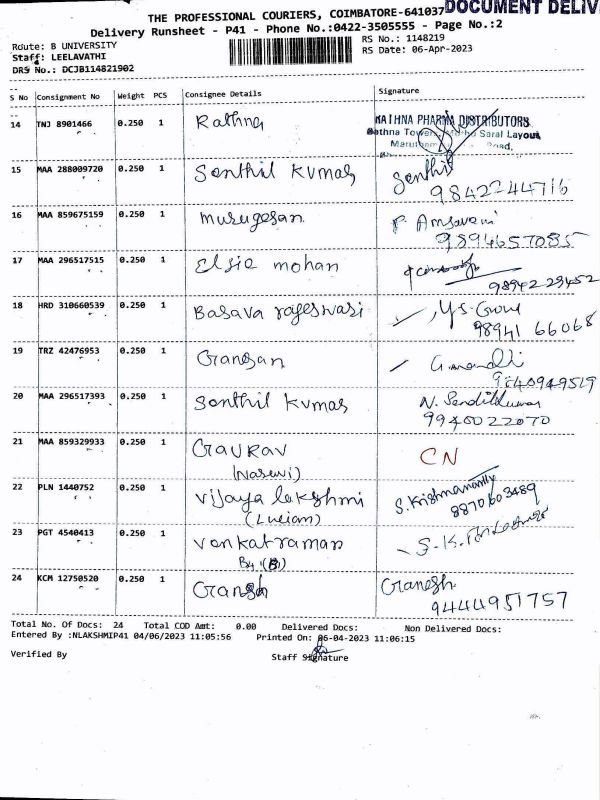 THE PROFESSIONAL COURIERS, COIMBATORE-641037 DOCUMENT DELIV
Delivery Runsheet - P41 - Phone No.:0422-3505555 - Page No.:2
Route: B UNIVERSITY RS No.: 1148219
Staff: LEELAVATHI RS Date: 06-Apr-2023
DRS No.: DCJB114821902
S No Consignment No Weight PCS Consignee Details Signature
14 TNJ 8901466 0.250 1 Rathna RATHNA PHARMA DISTRIBUTORS
Rathna Tower, Saral Layout,
Road,
15 MAA 288009720 0.250 1 Senthil Kumar Senthil
9842244716
16 MAA 859675159 0.250 1 Murugesan P. Amsaveni
9894657085
17 MAA 296517515 0.250 1 Elsie mohan
9894229452
18 HRD 310660539 0.250 1 Basava rajeswari
98941 66068
19 TRZ 42476953 0.250 1 Ganesan
20 MAA 296517393 0.250 1 Senthil Kumar N. Sendilkumar
21 MAA 859329933 0.250 1 Gaurav CN
22 PLN 1440752 0.250 1 Vijaya lakshmi
8870603489
23 PGT 4540413 0.250 1 Venkatraman
24 KCM 12750520 0.250 1 Ganesh Ganesh
9444951757
Total No. Of Docs: 24 Total COD Amt: 0.00 Delivered Docs: Non Delivered Docs:
Entered By :NLAKSHMIP41 04/06/2023 11:05:56 Printed On: 06-04-2023 11:06:15
Verified By Staff Signature